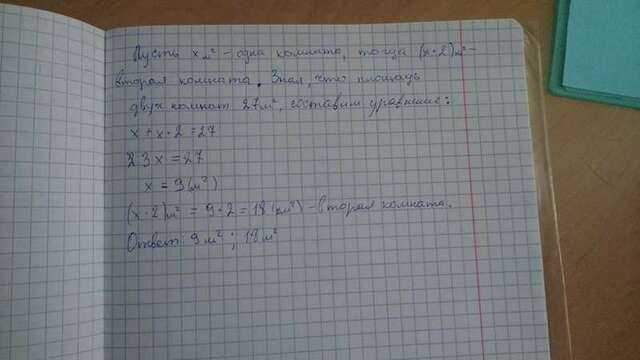 Пусть x м² - одна комната, тогда (x·2)м² -
вторая комната. Зная, что площадь
двух комнат 27м², составим уравнение:
x + x·2 = 27
3x = 27
x = 9(м²)
(x·2)м² = 9·2 = 18(м²) - вторая комната.
Ответ 9м²; 18м²